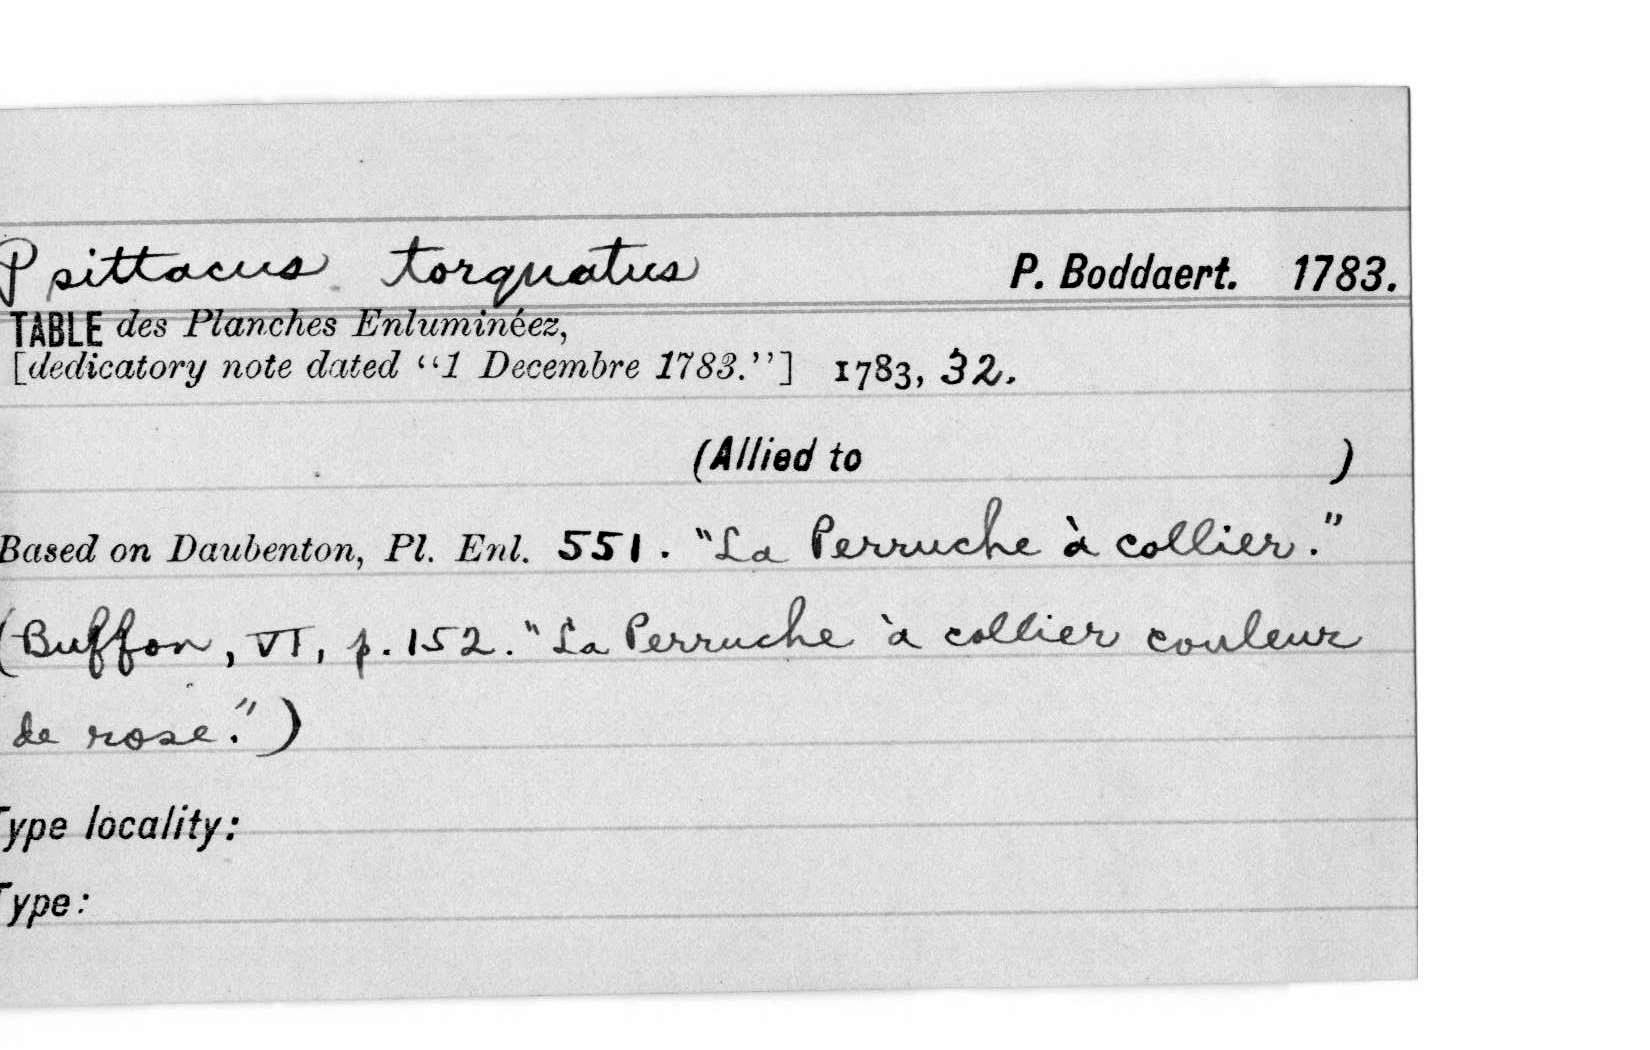 Psittacus torquatus P. Boddaert. 1783.
TABLE des Planches Enluminéez,
[dedicatory note dated “1 Decembre 1783.”] 1783, 32.
(Allied to )
Based on Daubenton, Pl. Enl. 551. "La Perruche à collier."
(Buffon, VI, p. 152. "La Perruche à collier couleur
de rose.")
Type locality:
Type: